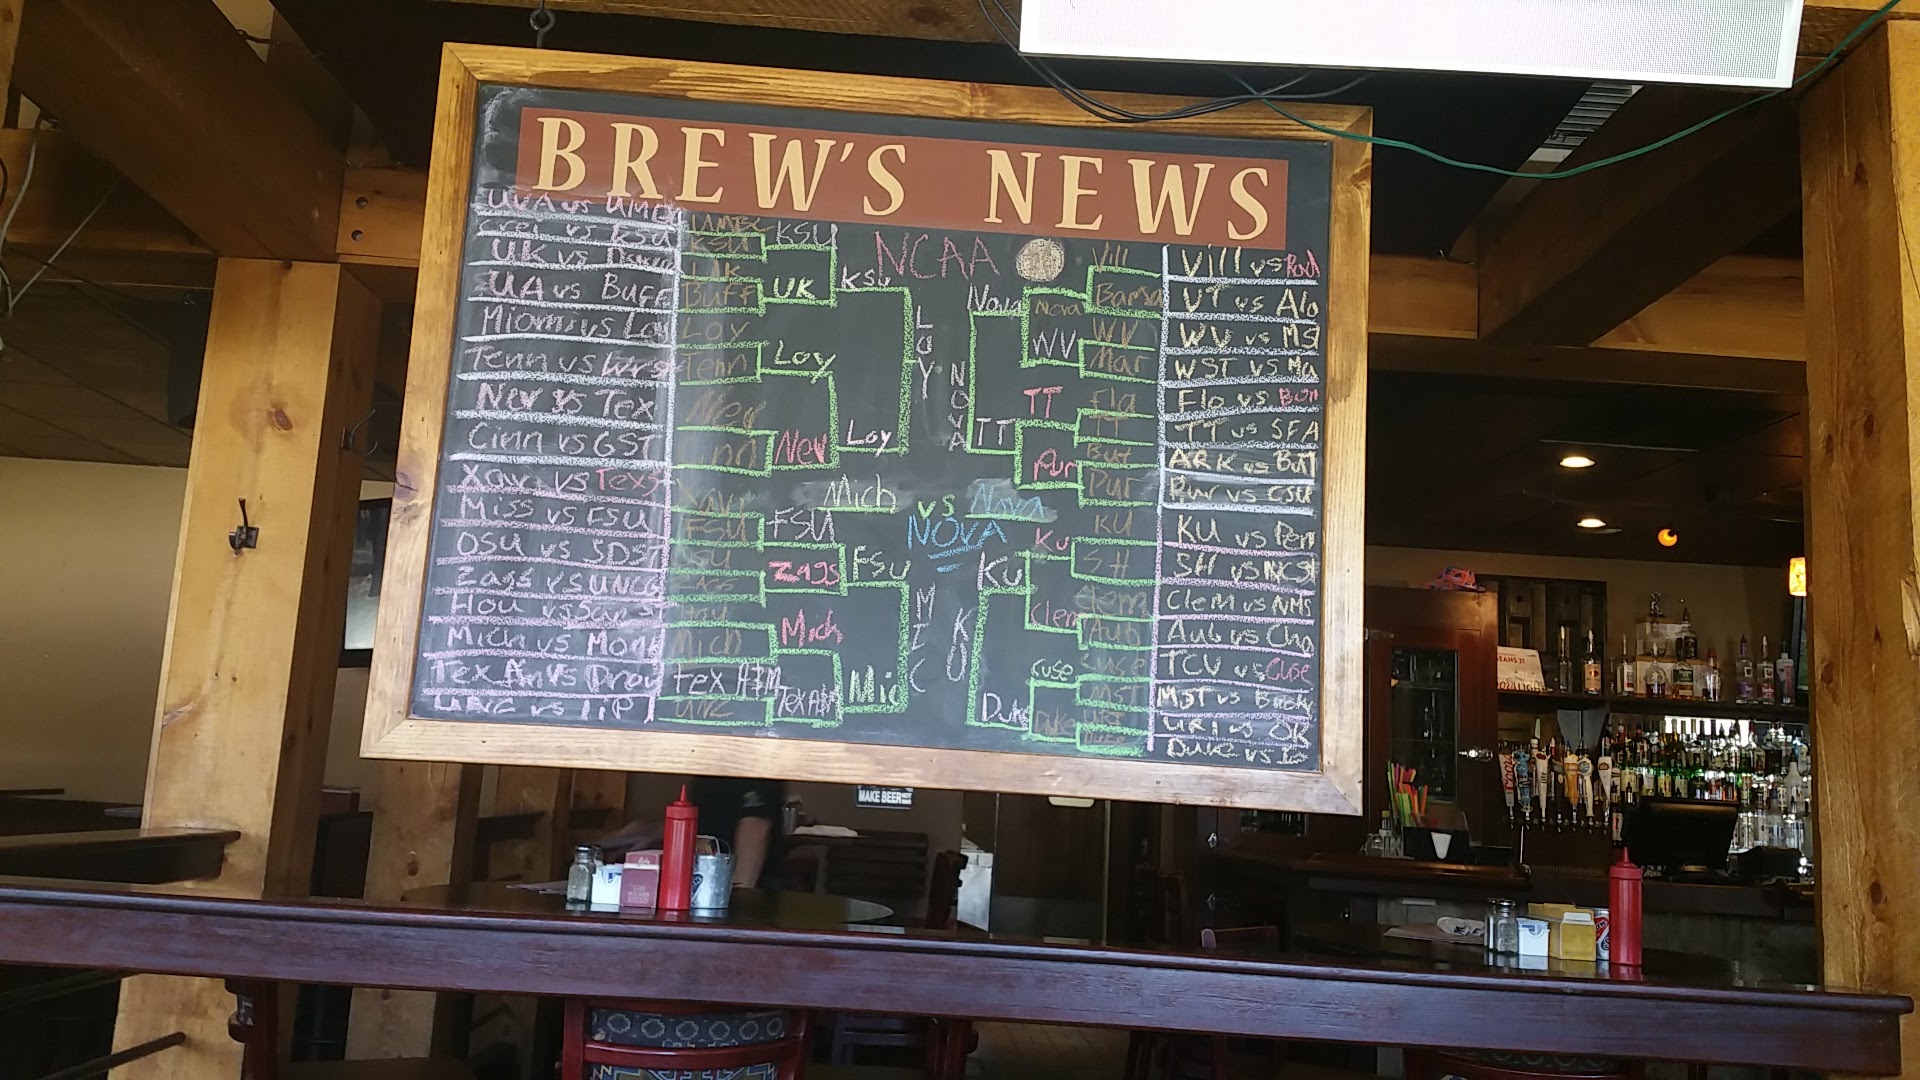 BREW'S NEWS
NCAA
UVA vs UMBC
UK vs
UA vs BUFF
Miami vs Loy
Tenn vs Wrst
Nev vs Tex
Cinn vs GST
Xav vs Texs
Miss vs FSU
OSU vs SDST
Zags vs UNCG
Hou vs
Mich vs Mont
Tex Am vs Prov
UNC vs LIP
KSU
Buff
Loy
Tenn
Nev
Xav
FSU
Mich
Tex A&M
UNC
KSU
UK
Loy
Nev
FSU
ZAGS
Mich
Tex A&M
KSU
Loy
FSU
Mic
LOY
MIC
Mich vs Nova
NOVA
NOVA
KU
Nova
TT
KU
Duke
Nova
WV
TT
Pur
KU
Clem
Cuse
Duke
Vill
Bama
WV
Mar
Fla
TT
But
Pur
KU
SH
Clem
Aub
Cuse
MST
Vill vs Rad
VT vs Ala
WV vs MS
WST vs Ma
Fla vs Bon
TT vs SFA
ARK vs BUT
Pur vs CSU
KU vs Pen
SH vs NCST
Clem vs NMS
Aub vs Cha
TCU vs Cuse
MST vs Buck
URI vs OK
Duke vs
MAKE BEER